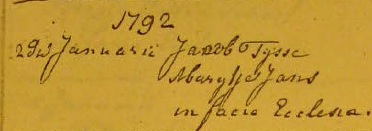 1792
2 dus Januarii Jacob Tysse
Marysse Jans
in facie Ecclesia.